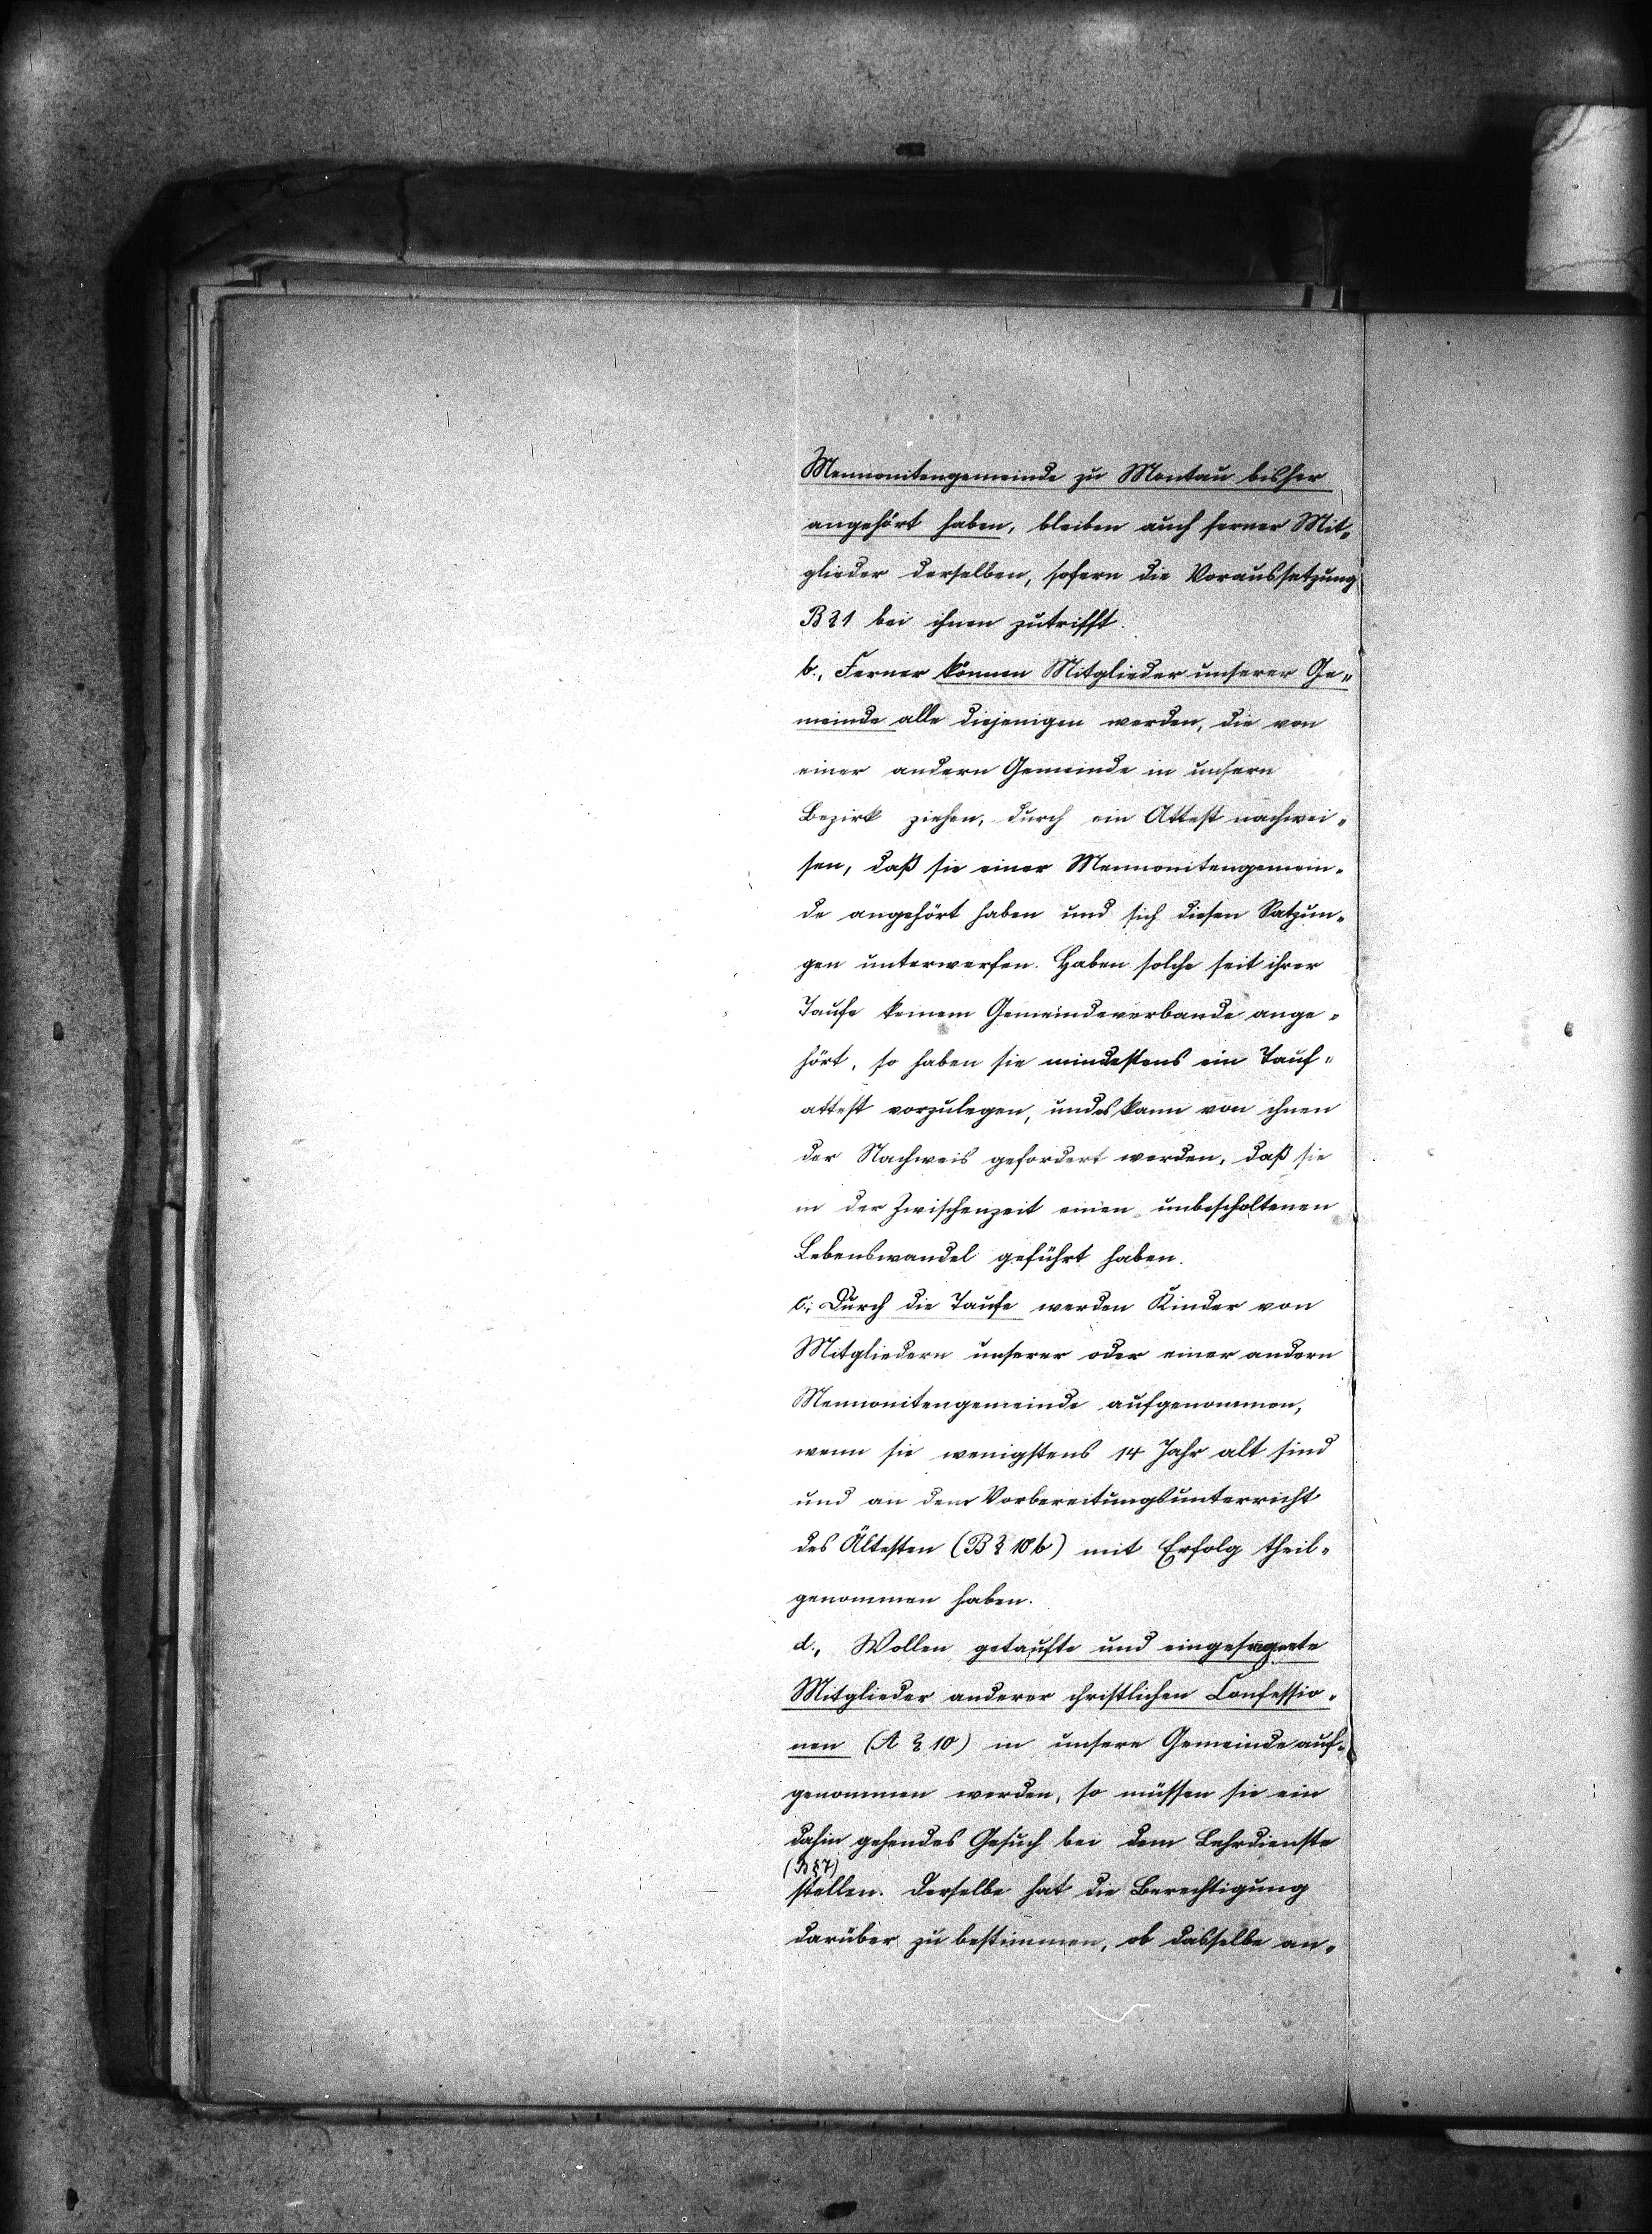 Mennonitengemeinde zu Montau bisher
angehört haben, bleiben auch ferner Mit„
glieder derselben, sofern die Voraussetzung
B § 1 bei ihnen zutrifft.
b., Ferner können Mitglieder unserer Ge„
meinde alle diejenigen werden, die von
einer andern Gemeinde in unsern
Bezirk ziehen, durch ein Attest nachwei„
sen, daß sie einer Mennonitengemein„
de angehört haben und sich diesen Satzun„
gen unterwerfen. Haben solche seit ihrer
Taufe keinem Gemeindeverbande ange„
hört, so haben sie mindestens ein Tauf„
attest vorzulegen, und es kann von ihnen
der Nachweis gefordert werden, daß sie
in der Zwischenzeit einen unbescholtenen
Lebenswandel geführt haben.
c., Durch die Taufe werden Kinder von
Mitgliedern unserer oder einer andern
Mennonitengemeinde aufgenommen,
wenn sie wenigstens 14 Jahr alt sind
und an dem Vorbereitungsunterricht
des Ältesten (B § 10 b) mit Erfolg theil„
genommen haben.
d., Wollen getaufte und eingesegnete
Mitglieder anderer christlichen Confessio„
nen (A § 10) in unsere Gemeinde auf„
genommen werden, so müssen sie ein
dahin gehendes Gesuch bei dem Lehrdienste
(B § 7)
stellen. Derselbe hat die Berechtigung
darüber zu bestimmen, ob dasselbe an„